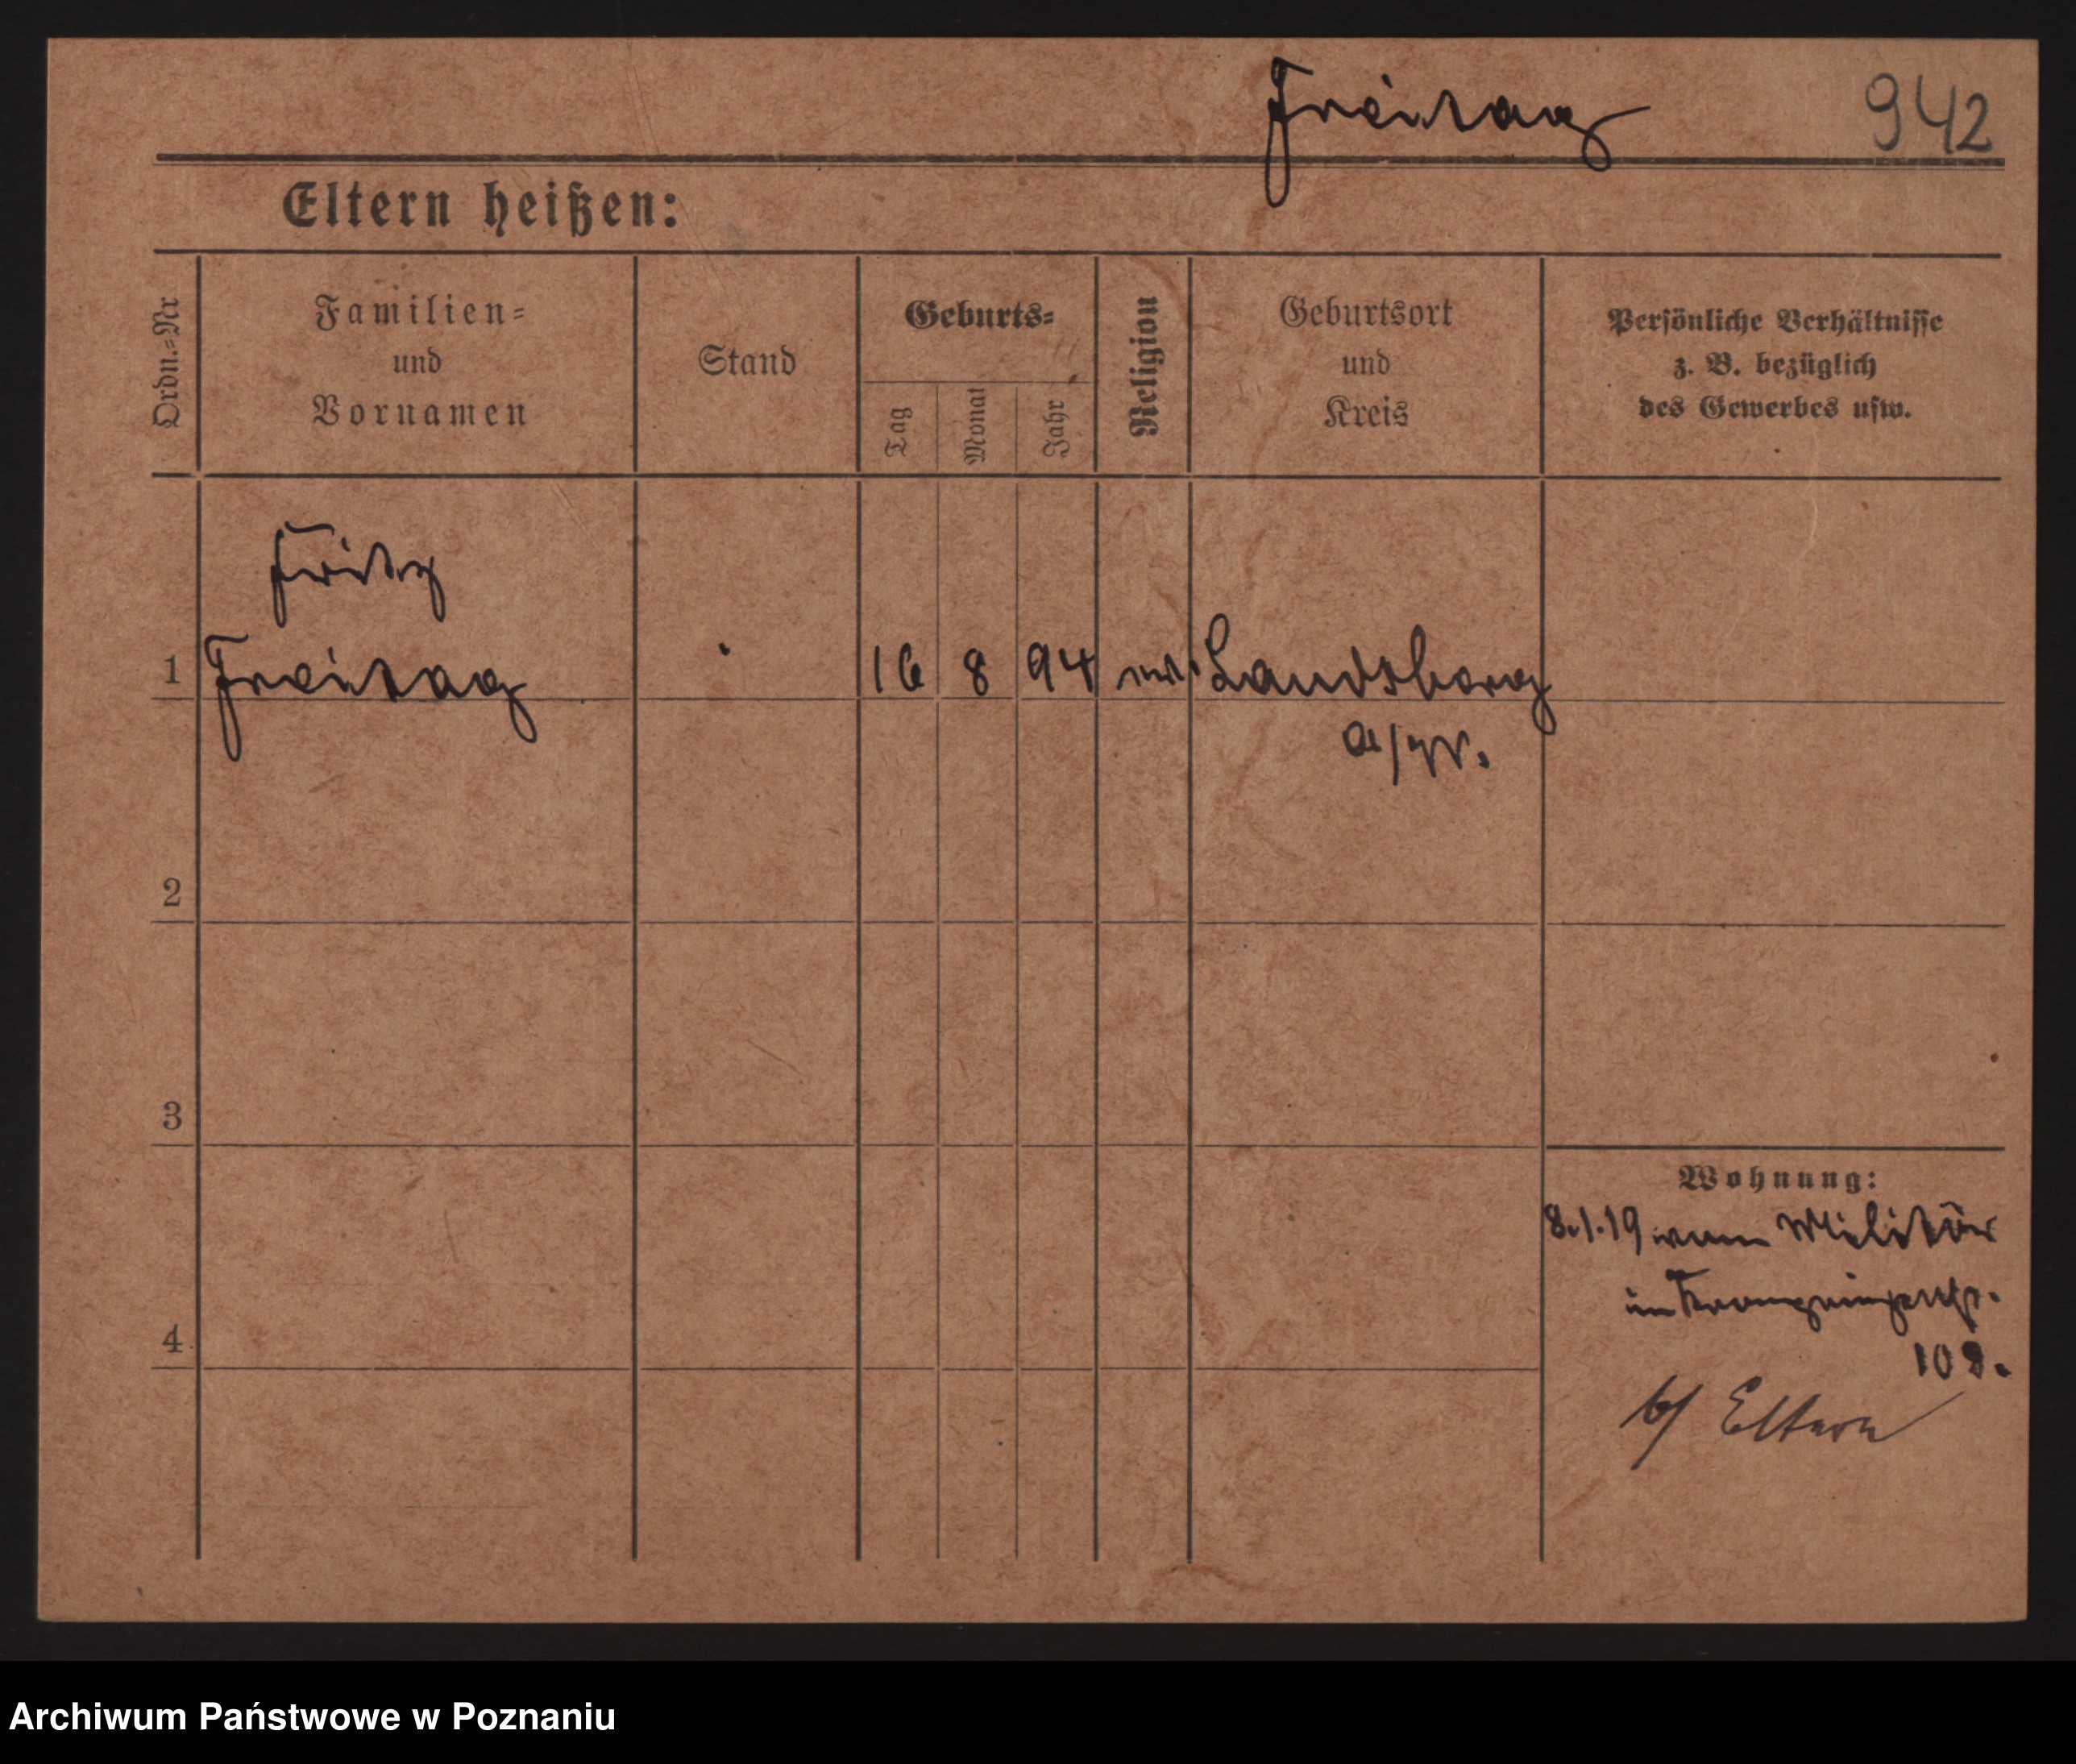 Freitag 942
Eltern heißen:
Ordn.=Nr
Familien=
und
Vornamen
Stand
Geburts=
Tag
Monat
Jahr
Religion
Geburtsort
und
Kreis
Persönliche Verhältnisse
z. B. bezüglich
des Gewerbes usw.
Fritz
1 Freitag 16 8 94 Landsberg
a/W.
2
3
4
Wohnung:
8.1.19 vom Militär
im
108.
b/ Eltern
Archiwum Państwowe w Poznaniu